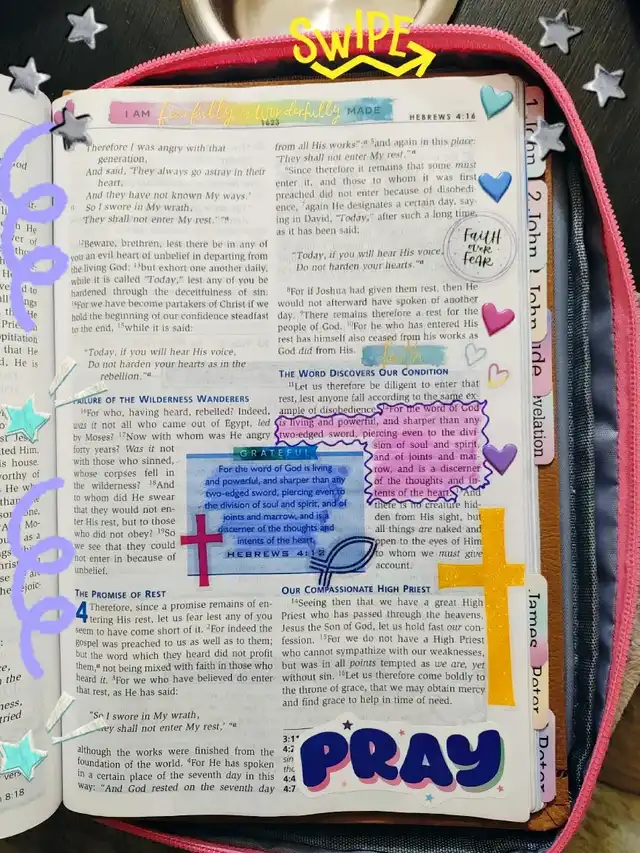 SWIPE
I AM fearfully & Wonderfully MADE
1623
HEBREWS 4:16
Therefore I was angry with that
generation,
And said, ‘They always go astray in their
heart,
And they have not known My ways.’
So I swore in My wrath,
‘They shall not enter My rest.’ ”
12Beware, brethren, lest there be in any of
you an evil heart of unbelief in departing from
the living God; 13but exhort one another daily,
while it is called “Today,” lest any of you be
hardened through the deceitfulness of sin.
14For we have become partakers of Christ if we
hold the beginning of our confidence steadfast
to the end, 15while it is said:
“Today, if you will hear His voice,
Do not harden your hearts as in the
rebellion.”
FAILURE OF THE WILDERNESS WANDERERS
16For who, having heard, rebelled? Indeed,
was it not all who came out of Egypt, led
by Moses? 17Now with whom was He angry
forty years? Was it not
with those who sinned,
whose corpses fell in
the wilderness? 18And
to whom did He swear
that they would not en-
ter His rest, but to those
who did not obey? 19So
we see that they could
not enter in because of
unbelief.
GRATEFUL
For the word of God is living
and powerful, and sharper than any
two-edged sword, piercing even to
the division of soul and spirit, and of
joints and marrow, and is a
discerner of the thoughts and
intents of the heart.
HEBREWS 4:12
THE PROMISE OF REST
4 Therefore, since a promise remains of en-
tering His rest, let us fear lest any of you
seem to have come short of it. 2For indeed the
gospel was preached to us as well as to them;
but the word which they heard did not profit
them, not being mixed with faith in those who
heard it. 3For we who have believed do enter
that rest, as He has said:
“So I swore in My wrath,
‘They shall not enter My rest,’ ”
although the works were finished from the
foundation of the world. 4For He has spoken
in a certain place of the seventh day in this
way: “And God rested on the seventh day
from all His works”; 5and again in this place:
“They shall not enter My rest.”
6Since therefore it remains that some must
enter it, and those to whom it was first
preached did not enter because of disobedi-
ence, 7again He designates a certain day, say-
ing in David, “Today,” after such a long time,
as it has been said:
“Today, if you will hear His voice,
Do not harden your hearts.”
8For if Joshua had given them rest, then He
would not afterward have spoken of another
day. 9There remains therefore a rest for the
people of God. 10For he who has entered His
rest has himself also ceased from his works as
God did from His.
faith
THE WORD DISCOVERS OUR CONDITION
11Let us therefore be diligent to enter that
rest, lest anyone fall according to the same ex-
ample of disobedience. 12For the word of God
is living and powerful, and sharper than any
two-edged sword, piercing even to the divi-
sion of soul and spirit,
and of joints and mar-
row, and is a discerner
of the thoughts and in-
tents of the heart. 13And
there is no creature hid-
den from His sight, but
all things are naked and
open to the eyes of Him
to whom we must give
account.
OUR COMPASSIONATE HIGH PRIEST
14Seeing then that we have a great High
Priest who has passed through the heavens,
Jesus the Son of God, let us hold fast our con-
fession. 15For we do not have a High Priest
who cannot sympathize with our weaknesses,
but was in all points tempted as we are, yet
without sin. 16Let us therefore come boldly to
the throne of grace, that we may obtain mercy
and find grace to help in time of need.
3:11
4:2
4:4
4:7
PRAY
FAITH OVER FEAR
1 John
2 John
John
Jude
Revelation
James
Peter
Peter
8:18